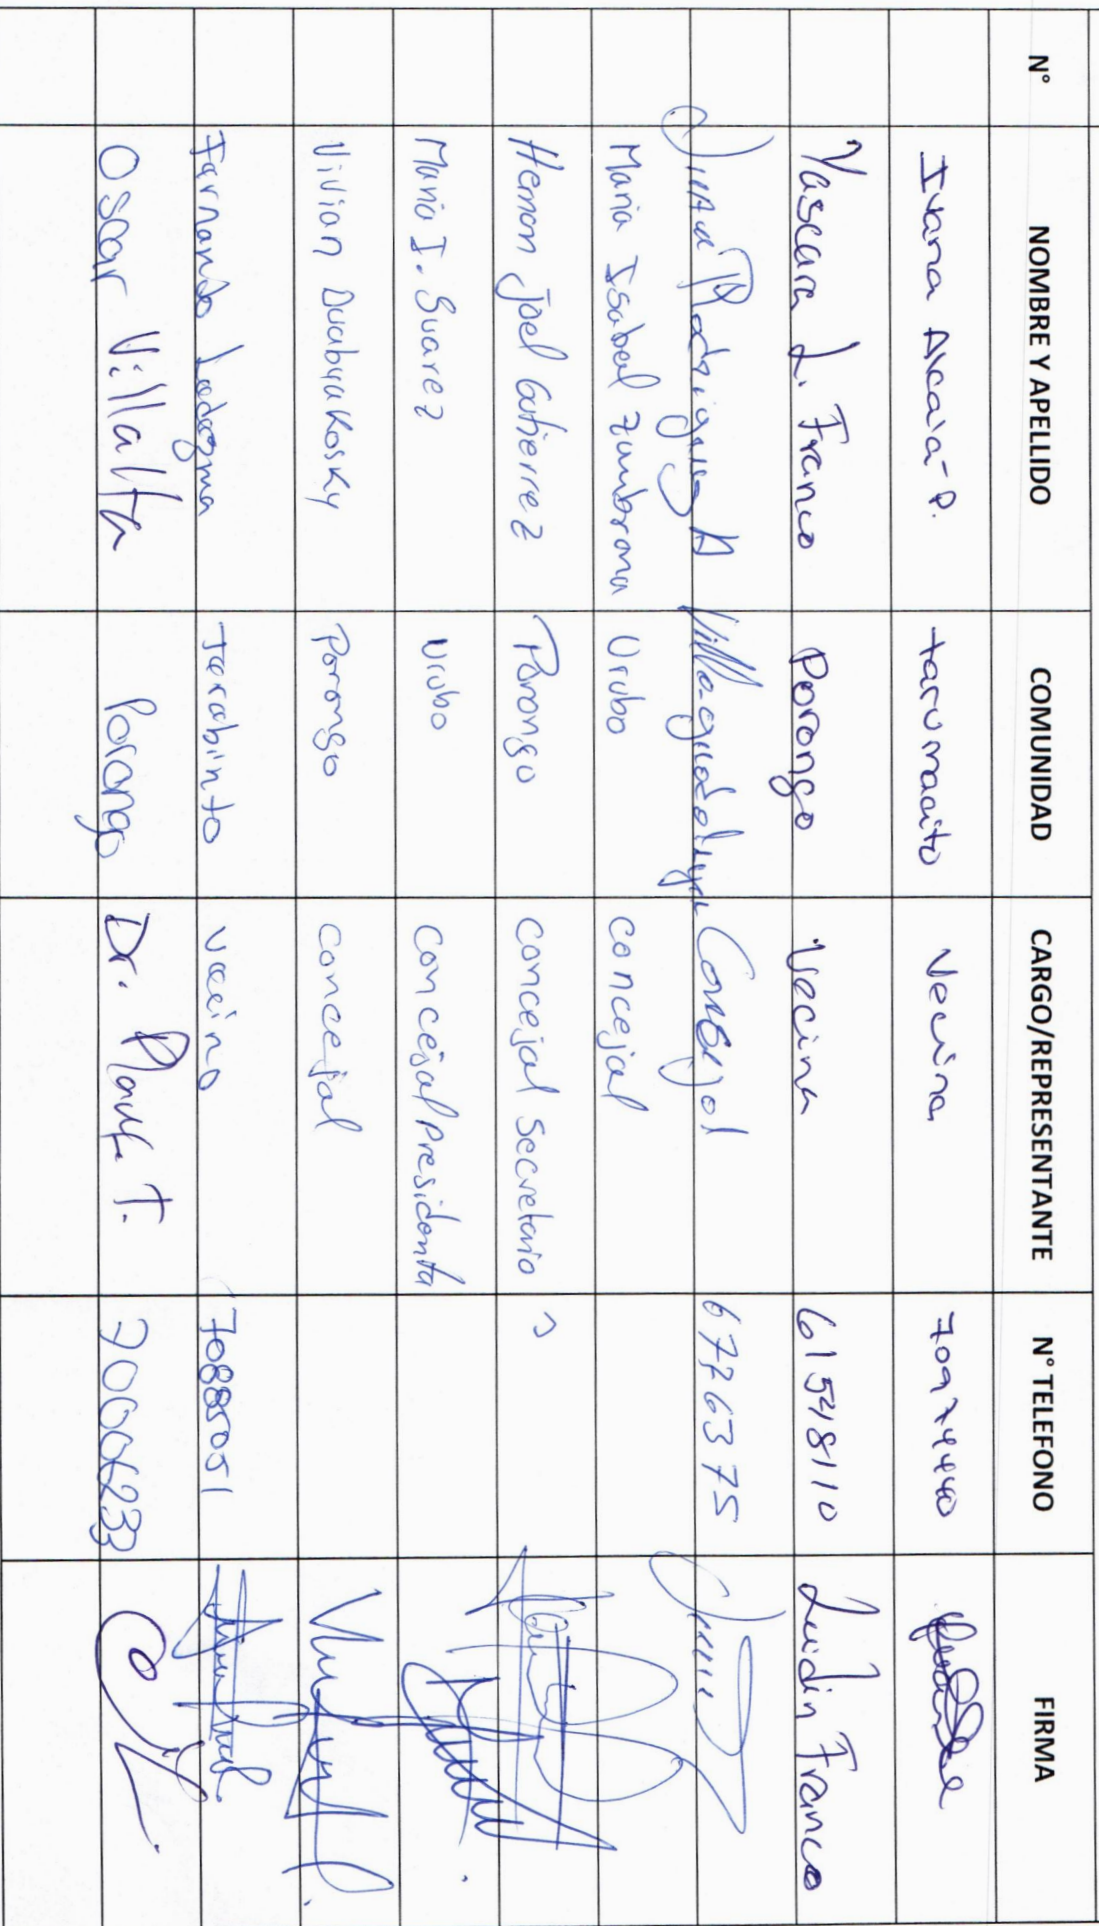 N° NOMBRE Y APELLIDO COMUNIDAD CARGO/REPRESENTANTE N° TELEFONO FIRMA
Ivana Alcalá P. tarumacito Vecina 70974440
Yascara L. Franco Porongo Vecina 61548110 Luidin Franco
Rodriguez A Villa guadalupe Consejal 67263375
Maria Isabel Zumbrana Urubo concejal
Hernan Joel Gutierrez Porongo concejal Secretario
Maria I. Suarez Urubo Concejal Presidenta
Vivian Duabyakosky Porongo concejal
Fernando Ledezma Terebinto vecino 70885051
Oscar Villalta Porongo Dr. T. 70006233